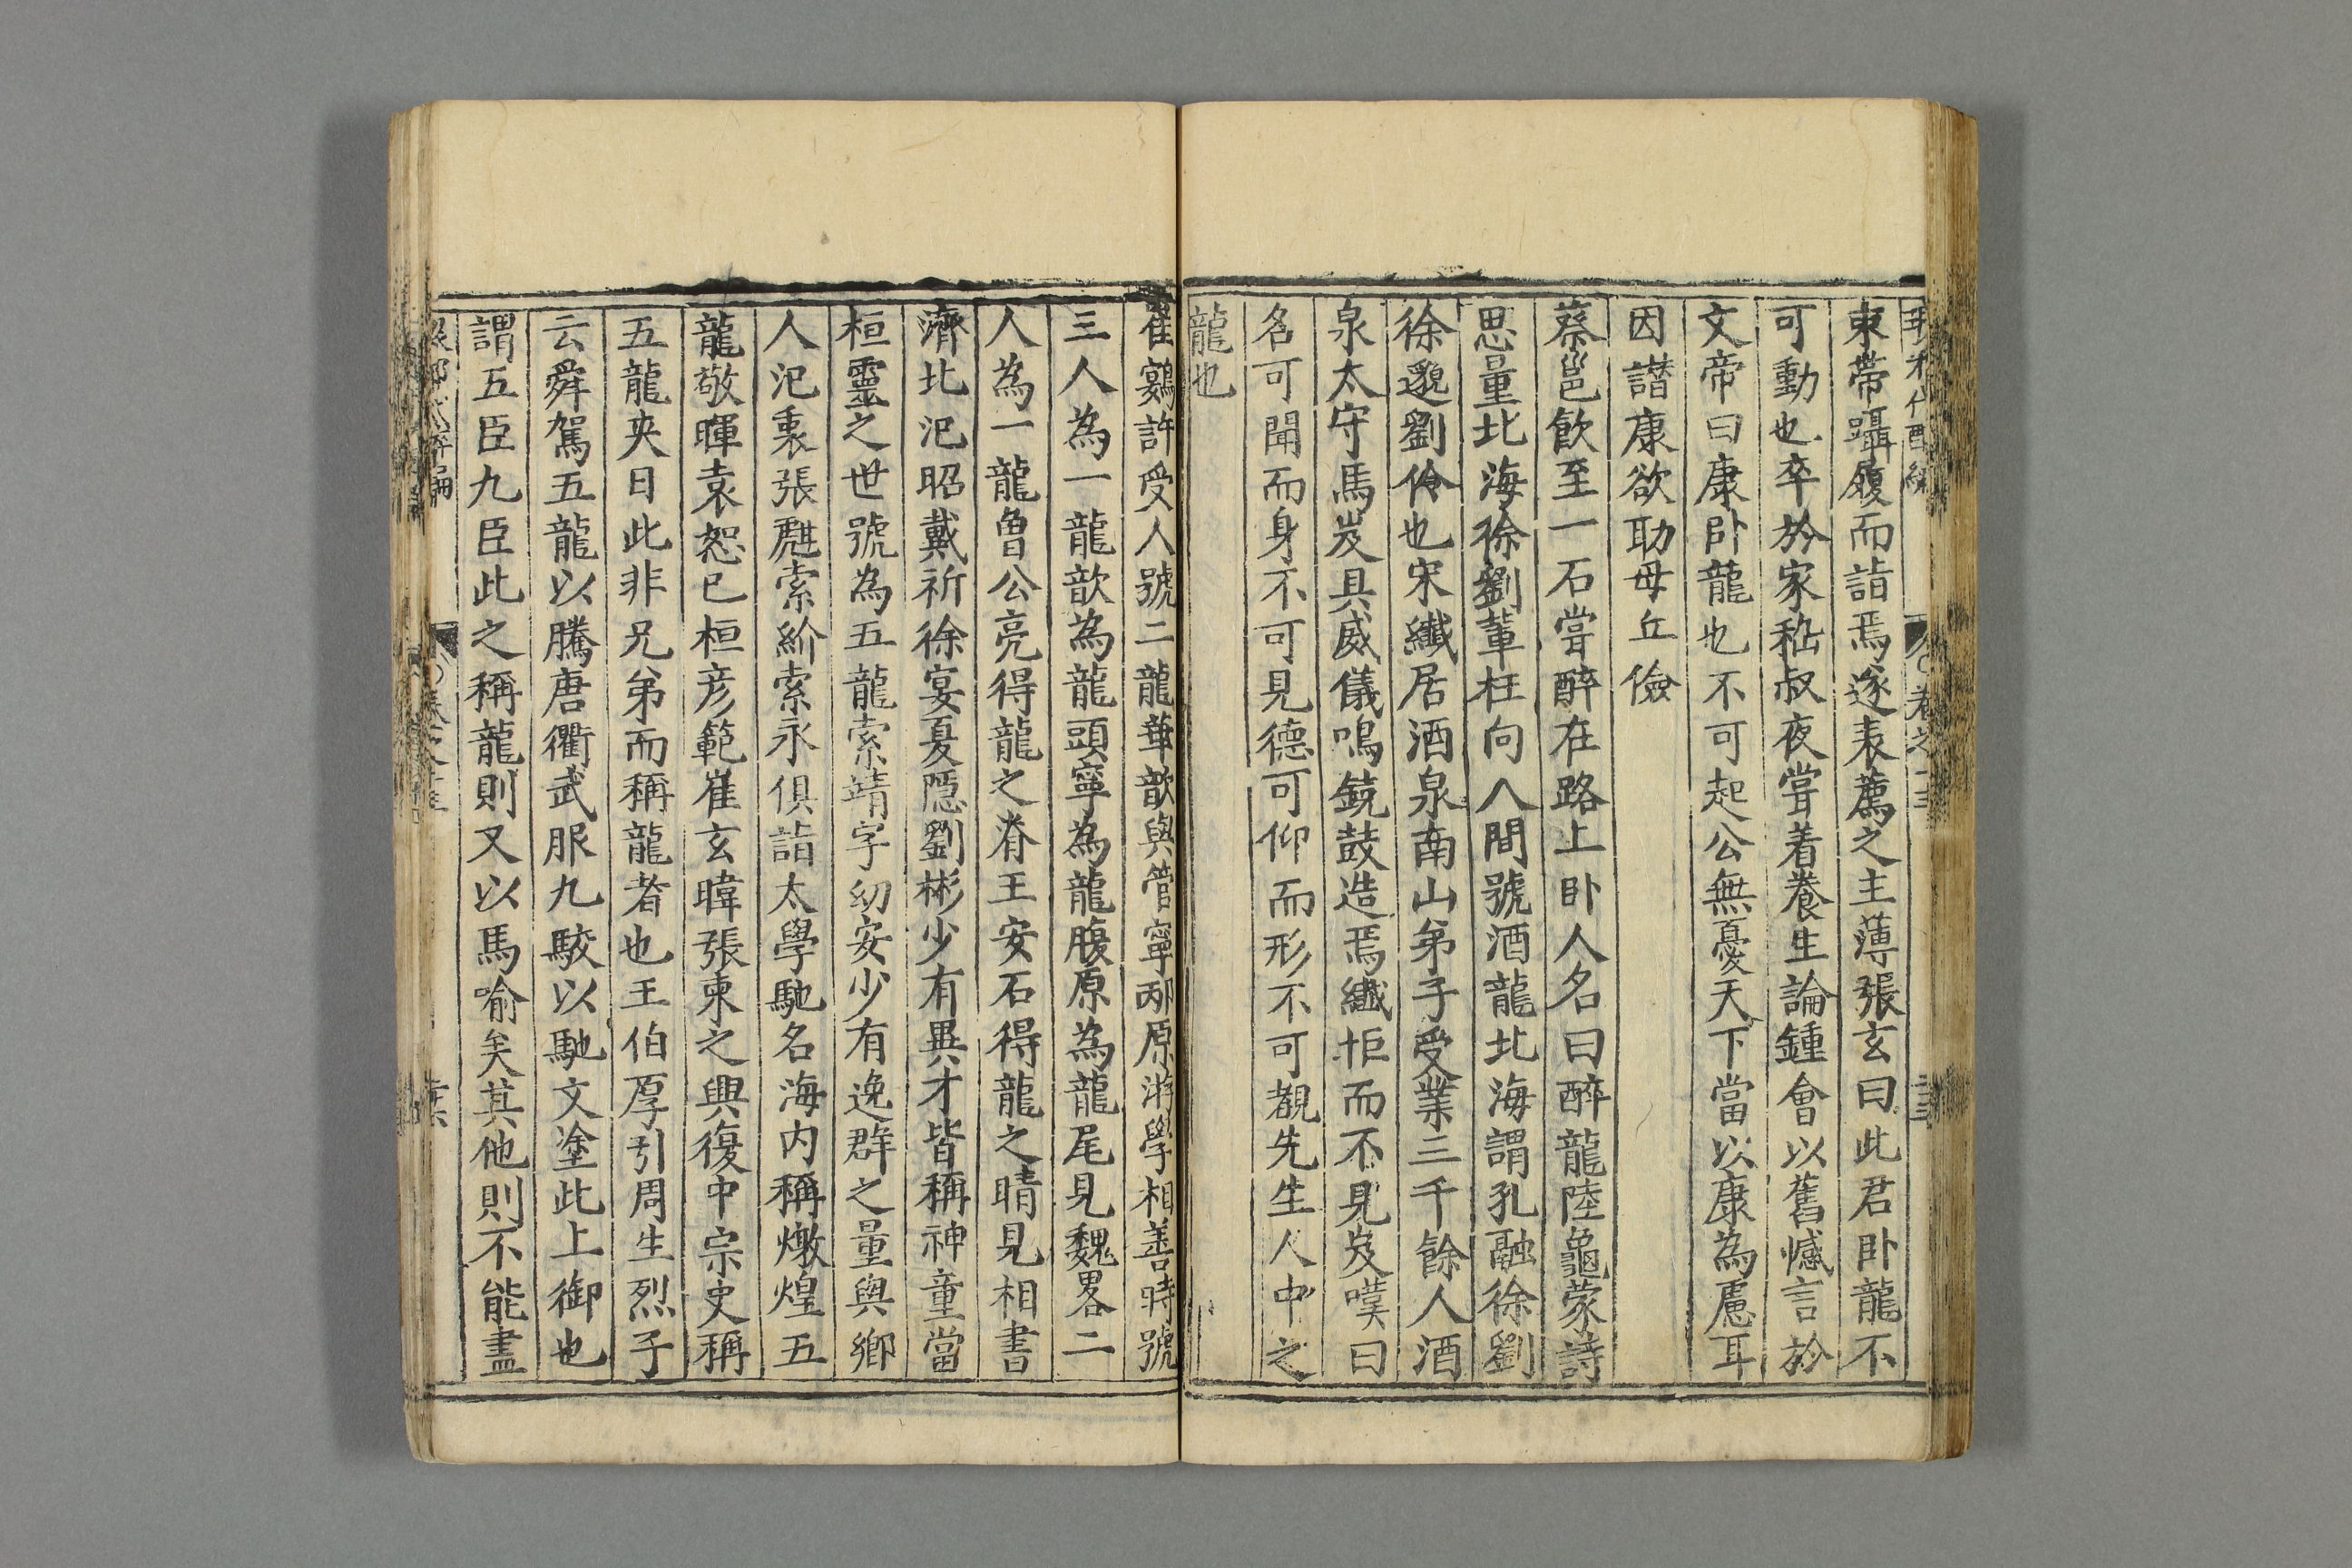 束帶躡履而詣焉遂表薦之主薄張玄曰此君卧龍不
可動也卒於家嵇叔夜嘗着養生論鍾會以舊憾言於
文帝曰康卧龍也不可起公無憂天下當以康為慮耳
因譖康欲助毋丘儉
蔡邕飲至一石嘗醉在路上卧人名曰醉龍陸龜蒙詩
思量北海徐劉輩枉向人間號酒龍北海謂孔融徐劉
徐邈劉伶也宋纖居酒泉南山弟子受業三千餘人酒
泉太守馬岌具威儀鳴鐃鼓造焉纖拒而不見岌嘆曰
名可聞而身不可見德可仰而形不可覩先生人中之
龍也
崔鷃許受人號二龍華歆與管寧邴原游學相善時號
三人為一龍歆為龍頭寧為龍腹原為龍尾見魏畧二
人為一龍魯公亮得龍之脊王安石得龍之睛見相書
濟北氾昭戴祈徐宴夏隱劉彬少有異才皆稱神童當
桓靈之世號為五龍索靖字幼安少有逸群之量與鄉
人氾衷張甝索紾索永俱詣太學馳名海內稱燉煌五
龍敬暉袁恕已桓彦範崔玄暐張柬之興復中宗史稱
五龍夾日此非兄弟而稱龍者也王伯厚引周生烈子
云舜駕五龍以騰唐衢武服九駮以馳文塗此上御也
謂五臣九臣此之稱龍則又以馬喻矣其他則不能盡